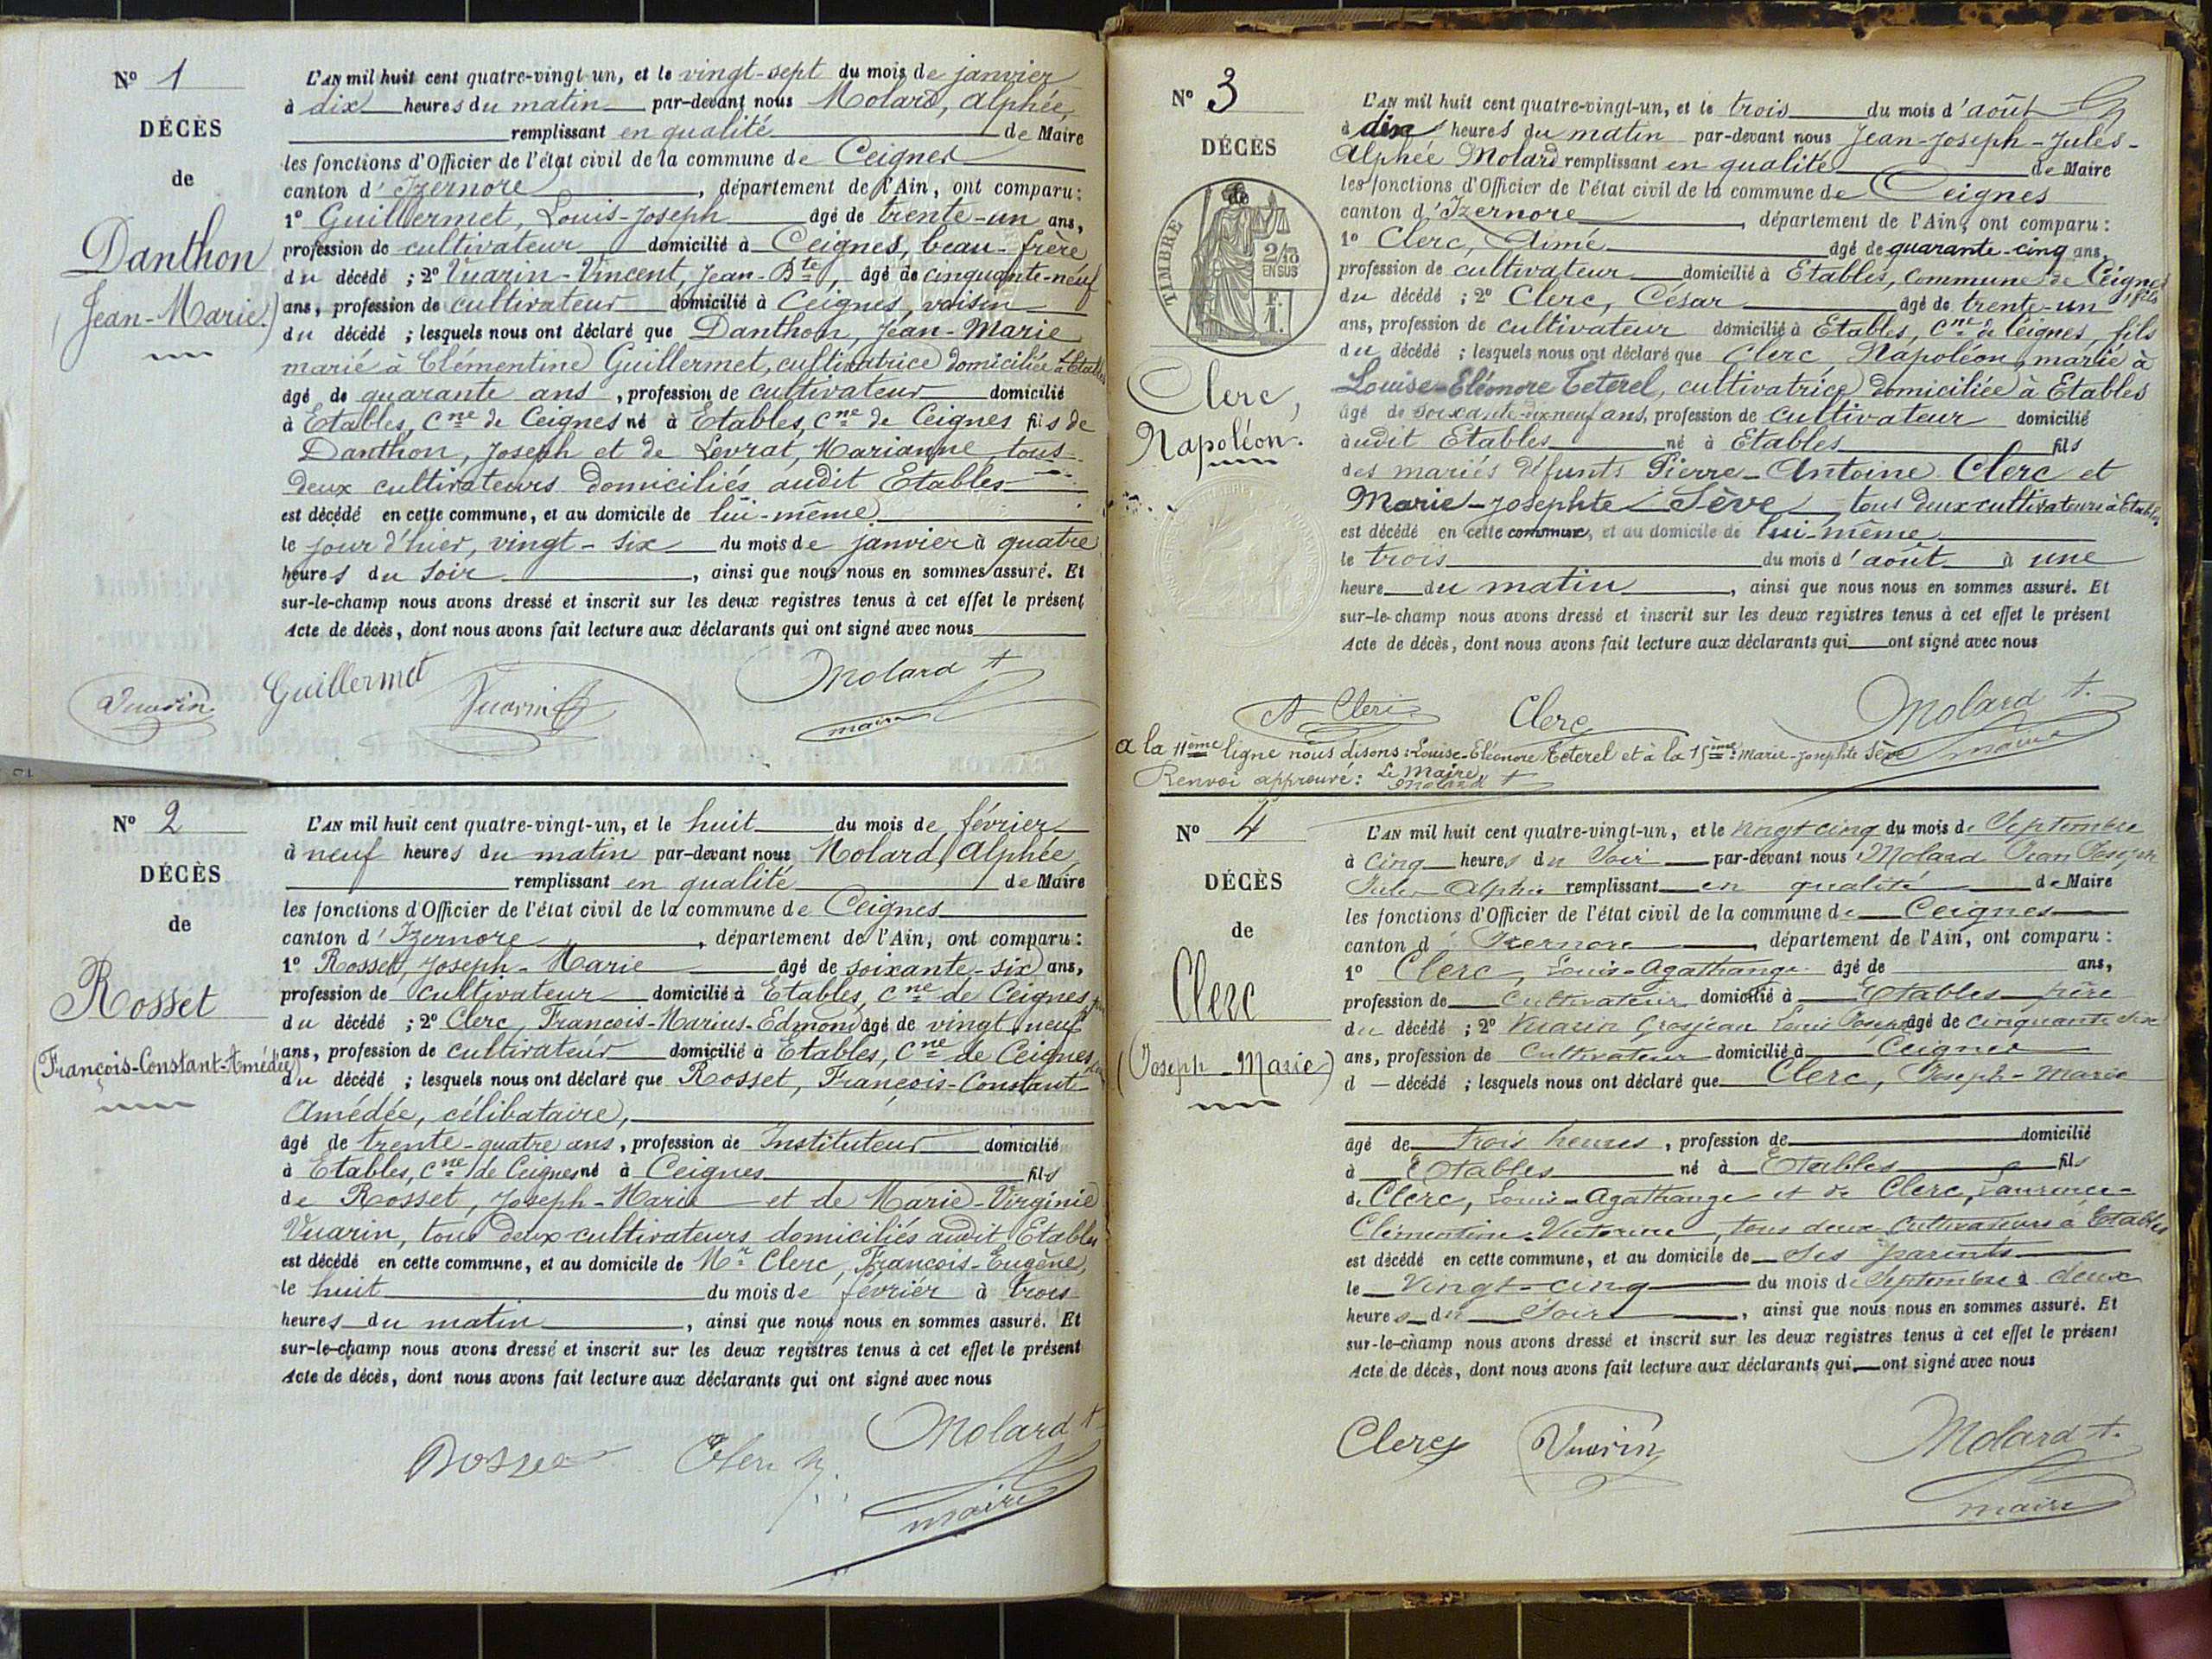 N° 1
DÉCÈS
de
Danthon
(Jean-Marie)
L'AN mil huit cent quatre-vingt-un, et le vingt-sept du mois de janvier
à dix heures du matin par-devant nous Molard, Alphée,
remplissant en qualité de Maire
les fonctions d'Officier de l'état civil de la commune de Ceignes
canton d'Izernore, département de l'Ain, ont comparu:
1° Guillermet, Louis-Joseph âgé de trente-un ans,
profession de cultivateur domicilié à Ceignes, beau-frère
du décédé ; 2° Vuarin-Vincent, Jean-Bte, âgé de cinquante-neuf
ans, profession de cultivateur domicilié à Ceignes, voisin
du décédé ; lesquels nous ont déclaré que Danthon, Jean-Marie
marié à Clémentine Guillermet, cultivatrice domiciliée à Etables
âgé de quarante ans, profession de cultivateur domicilié
à Etables, Cne de Ceignes né à Etables, Cne de Ceignes fils de
Danthon, Joseph et de Levrat, Marianne, tous
deux cultivateurs domiciliés audit Etables
est décédé en cette commune, et au domicile de lui-même
le jour d'hier, vingt-six du mois de janvier à quatre
heures du soir, ainsi que nous nous en sommes assuré. Et
sur-le-champ nous avons dressé et inscrit sur les deux registres tenus à cet effet le présent
Acte de décès, dont nous avons fait lecture aux déclarants qui ont signé avec nous
Vuarin Guillermet Vuarin Molard A
maire
N° 2
DÉCÈS
de
Rosset
(François-Constant-Amédée)
L'AN mil huit cent quatre-vingt-un, et le huit du mois de février
à neuf heures du matin par-devant nous Molard, Alphée
remplissant en qualité de Maire
les fonctions d'Officier de l'état civil de la commune de Ceignes
canton d'Izernore, département de l'Ain, ont comparu:
1° Rosset, Joseph-Marie âgé de soixante-six ans,
profession de cultivateur domicilié à Etables, Cne de Ceignes
du décédé ; 2° Clerc, François-Marius-Edmond âgé de vingt neuf
ans, profession de cultivateur domicilié à Etables, Cne de Ceignes
du décédé ; lesquels nous ont déclaré que Rosset, François-Constant
Amédée, célibataire,
âgé de trente-quatre ans, profession de Instituteur domicilié
à Etables, Cne de Ceignes né à Ceignes fils
de Rosset, Joseph-Marie et de Marie-Virginie
Vuarin, tous deux cultivateurs domiciliés audit Etables
est décédé en cette commune, et au domicile de Mr Clerc, François-Eugène,
le huit du mois de février à trois
heures du matin, ainsi que nous nous en sommes assuré. Et
sur-le-champ nous avons dressé et inscrit sur les deux registres tenus à cet effet le présent
Acte de décès, dont nous avons fait lecture aux déclarants qui ont signé avec nous
Rosset Clerc Molard A
maire
N° 3
DÉCÈS
de
TIMBRE
2/10
EN SUS
F.
1.
Clerc,
Napoléon.
L'AN mil huit cent quatre-vingt-un, et le trois du mois d'août
à dix heures du matin par-devant nous Jean-Joseph-Jules-
Alphée Molard remplissant en qualité de Maire
les fonctions d'Officier de l'état civil de la commune de Ceignes
canton d'Izernore, département de l'Ain, ont comparu:
1° Clerc, Aimé âgé de quarante-cinq ans,
profession de cultivateur domicilié à Etables, commune de Ceignes
fils
du décédé ; 2° Clerc, César âgé de trente-un
ans, profession de cultivateur domicilié à Etables, Cne de Ceignes, fils
du décédé ; lesquels nous ont déclaré que Clerc, Napoléon, marié à
Louise-Eléonore Teterel, cultivatrice domiciliée à Etables
âgé de soixante-dix neuf ans, profession de cultivateur domicilié
audit Etables né à Etables fils
des mariés défunts Pierre-Antoine Clerc et
Marie-Josephte Sève, tous deux cultivateurs à Etables
est décédé en cette commune, et au domicile de lui-même
le trois du mois d'août à une
heure du matin, ainsi que nous nous en sommes assuré. Et
sur-le-champ nous avons dressé et inscrit sur les deux registres tenus à cet effet le présent
Acte de décès, dont nous avons fait lecture aux déclarants qui ont signé avec nous
A Clerc Clerc Molard A.
maire
A la 11ème ligne nous disons: Louise-Eléonore Teterel et à la 15ème: Marie-Josephte Sève
Renvoi approuvé: Le Maire,
Molard A
N° 4
DÉCÈS
de
Clerc
(Joseph-Marie)
L'AN mil huit cent quatre-vingt-un, et le vingt-cinq du mois de Septembre
à cinq heures du soir par-devant nous Molard Jean Joseph
Jules Alphée remplissant en qualité de Maire
les fonctions d'Officier de l'état civil de la commune de Ceignes
canton d'Izernore, département de l'Ain, ont comparu:
1° Clerc, Louis-Agathange âgé de ans,
profession de cultivateur domicilié à Etables père
du décédé ; 2° Vuarin Grosjean Louis Joseph âgé de cinquante six
ans, profession de Cultivateur domicilié à Ceignes
d décédé ; lesquels nous ont déclaré que Clerc, Joseph-Marie
âgé de trois heures, profession de domicilié
à Etables né à Etables fils
de Clerc, Louis-Agathange et de Clerc, Laurence-
Clémentine-Victorine, tous deux cultivateurs à Etables
est décédé en cette commune, et au domicile de ses parents
le vingt-cinq du mois de Septembre à deux
heures du soir, ainsi que nous nous en sommes assuré. Et
sur-le-champ nous avons dressé et inscrit sur les deux registres tenus à cet effet le présent
Acte de décès, dont nous avons fait lecture aux déclarants qui ont signé avec nous
Clerc Vuarin Molard A.
maire